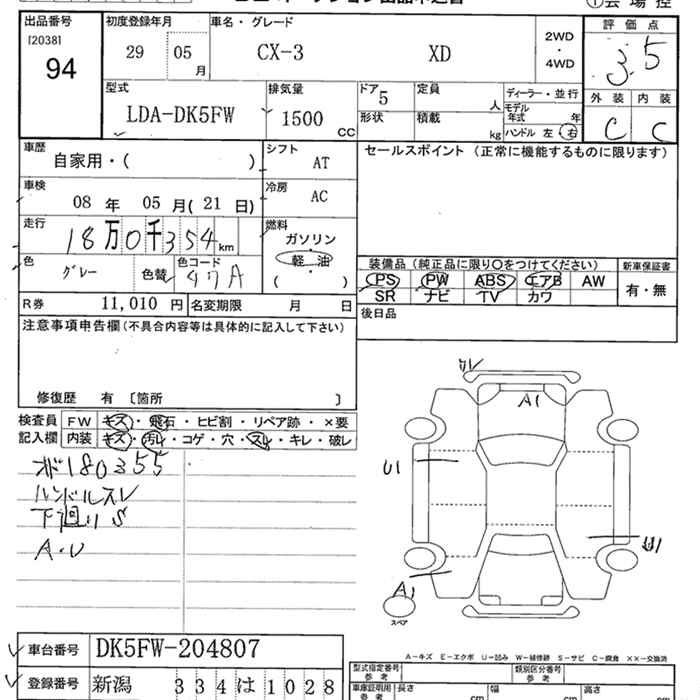 出品番号
[2038]
94
初度登録年月
29 05
月
車名・グレード
CX-3 XD
2WD
・
4WD
評価点
3.5
型式
LDA-DK5FW
排気量
1500
CC
ドア
5
形状
定員
人
積載
kg
ディーラー・並行
モデル
年式 年
ハンドル 左 右
外装 内装
C C
車歴
自家用・( )
シフト
AT
セールスポイント(正常に機能するものに限ります)
車検
08 年 05 月(21 日)
冷房
AC
走行
18万0千354km
燃料
ガソリン
軽・油
( ・ )
色
グレー
色替
色コード
47A
装備品(純正品に限り○をつけてください)
新車保証書
PS PW ABS エアB AW
SR ナビ TV カワ
有・無
R券 11,010 円
名変期限 月 日
後日品
注意事項申告欄(不具合内容等は具体的に記入して下さい)
修復歴 有 〔箇所 〕
検査員
記入欄
FW キズ・飛石・ヒビ割・リペア跡・×要
内装 キズ・汚れ・コゲ・穴・スレ・キレ・破レ
オド180355
ハンドルスレ
下廻りS
A・U
A1
U1
A1
スペア
A-キズ E-エクボ U-凹み W-補修跡 S-サビ C-腐食 ××-交換済
車台番号 DK5FW-204807
登録番号 新潟 334 は 1028
型式指定番号
参考
類別区分番号
参考
車庫証明用
参考
長さ cm
幅 cm
高さ cm